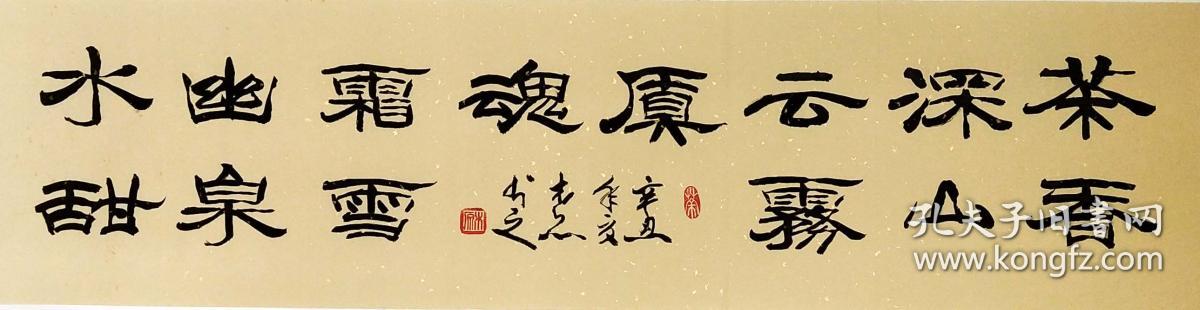 茶香
深山
云雾
质
魂
霜雪
幽泉
水甜
辛丑
年夏
书之
孔夫子旧书网
www.kongfz.com